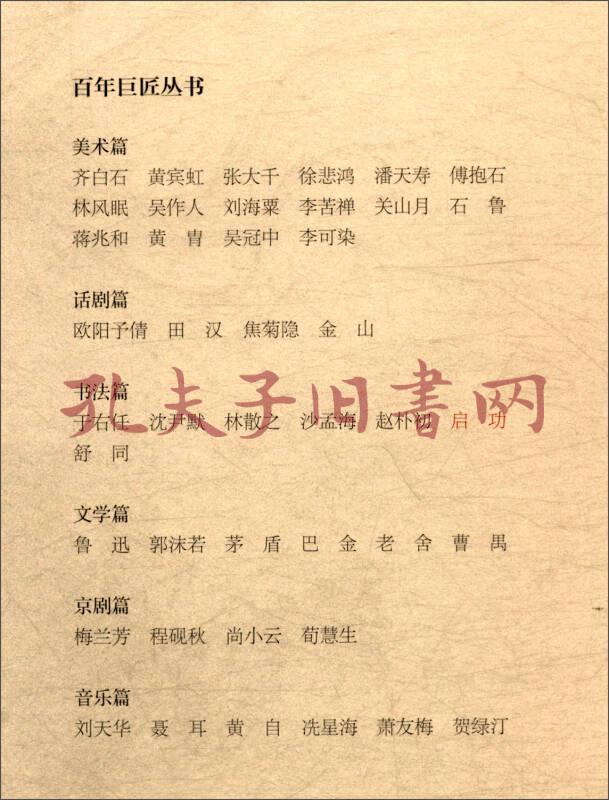 百年巨匠丛书
美术篇
齐白石 黄宾虹 张大千 徐悲鸿 潘天寿 傅抱石
林风眠 吴作人 刘海粟 李苦禅 关山月 石 鲁
蒋兆和 黄 胄 吴冠中 李可染
话剧篇
欧阳予倩 田 汉 焦菊隐 金 山
书法篇
于右任 沈尹默 林散之 沙孟海 赵朴初 启 功
舒 同
孔夫子旧書网
文学篇
鲁 迅 郭沫若 茅 盾 巴 金 老 舍 曹 禺
京剧篇
梅兰芳 程砚秋 尚小云 荀慧生
音乐篇
刘天华 聂 耳 黄 自 冼星海 萧友梅 贺绿汀